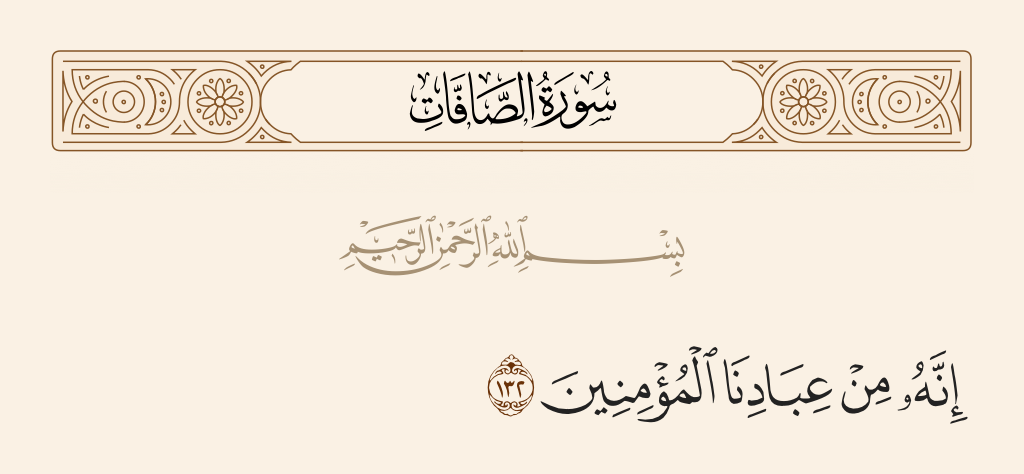 سُورَةُ الصَّافَّاتِ
بِسْمِ ٱللَّهِ ٱلرَّحْمَٰنِ ٱلرَّحِيمِ
إِنَّهُۥ مِنْ عِبَادِنَا ٱلْمُؤْمِنِينَ ١٣٢